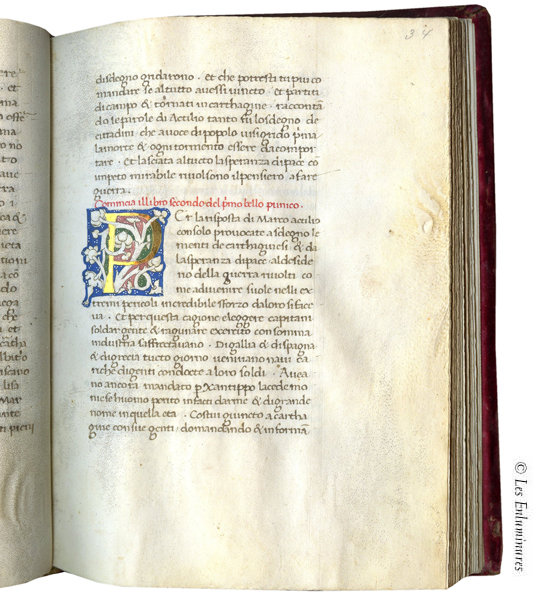 34
disdegno gridarono . et che potresti tu piu co
mandare se altutto avessi vinto . et partiti
di campo & tornati in carthagine . raccontā
do le parole di Actilio tanto fu losdegno de
cittadini che a voce di popolo vi si grido pͥma
la morte & ogni tormento essere da compor
tare . Et lasciata al tucto la speranza di pace cō
impeto mirabile rivolsono il pensiero a fare
guerra .
Comincia il libro secondo del pͥmo bello punico .
PEr la risposta di Marco actilio
consolo provocate a sdegno le
menti de carthaginesi & di
la speranza di pace al deside
rio della guerra rivolti co
me advenire suole nelli ex
tremi pericoli incredibile sforzo da loro si face
va . Et per questa cagione eleggere capitani
soldar gente & ragunare exercito con somma
industria saffrectavano . Di gallia & di spagna
& di grecia tucto giorno venivano navi ca
riche di genti conducte a loro soldi . Avea
no ancora mandato per Xantippo lacedemo
nese huomo perito in facti darme & di grande
nome in quella eta . Costui giuncto a cartha
gine con sue genti / domandando & informā
© Les Enluminures